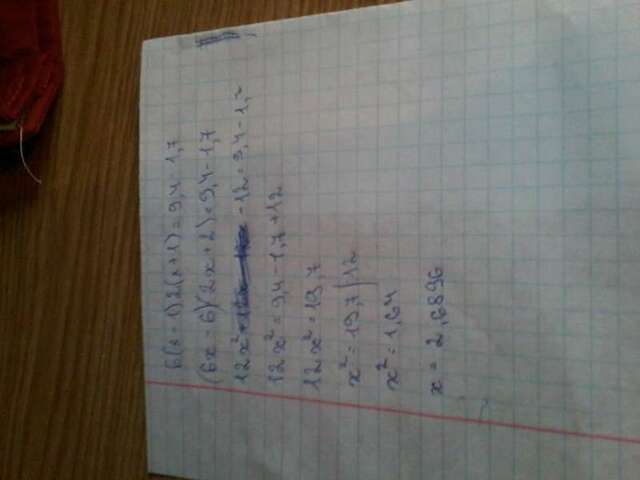 6(x-1)2(x+1)=9,4-1,7
(6x-6)(2x+2)=9,4-1,7
12x²+12x-12x-12=9,4-1,7
12x²=9,4-1,7+12
12x²=19,7
x²=19,7/12
x²=1,64
x=2,6896